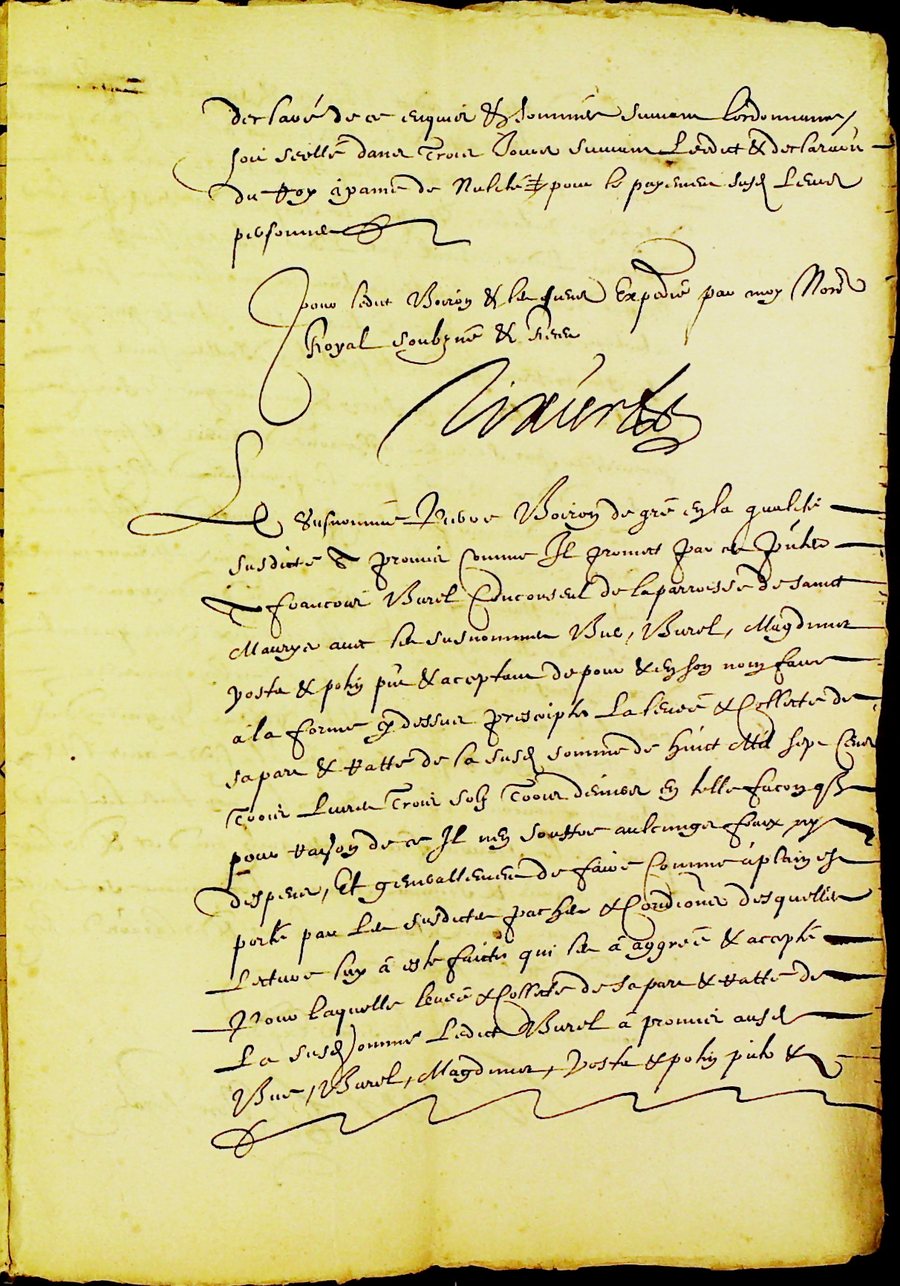 declaré de ce enquis & sommés suivant lordonnance
soit scellé dans Trois Jours suivant Ledict & declara͠on
du Roy a payne de Nulité pour le payement susd Leurs
personnes
Pour ledict Boiron & les siens Expedié par moy No͠re
Royal soubzné & Recu
Le susnommé Pierre Boiron de gré en la qualité
susdicte a promis Comme Il promect par ce p͠nts
a francois Burel Conconsul de la parroisse de sainct
Maurice avec les susnommes Bue, Burel, Magdinier
poste & p͠nt & aceptant de pour & en son nom faire
a la forme cy dessus prescripte La levée & Collecte de
sa part & ratte de la susd somme de huict Mil sept Cens
Trois Livres Trois solz Troys deniers en telle facon q͠
pour raison de ce Il nen souffre aulcungs fraix ny
despens, Et generallement de faire Comme a plain est
porté par Les susdictes pactes & Condi͠ons desquelles
Lecture luy a esté faicte qui les a aggreé & accepté
Pour laquelle levée & Collecte de sa part & ratte de
La susd somme Ledict Burel a promis ausd
Bue, Burel, Magdinier, poste & p͠nts &